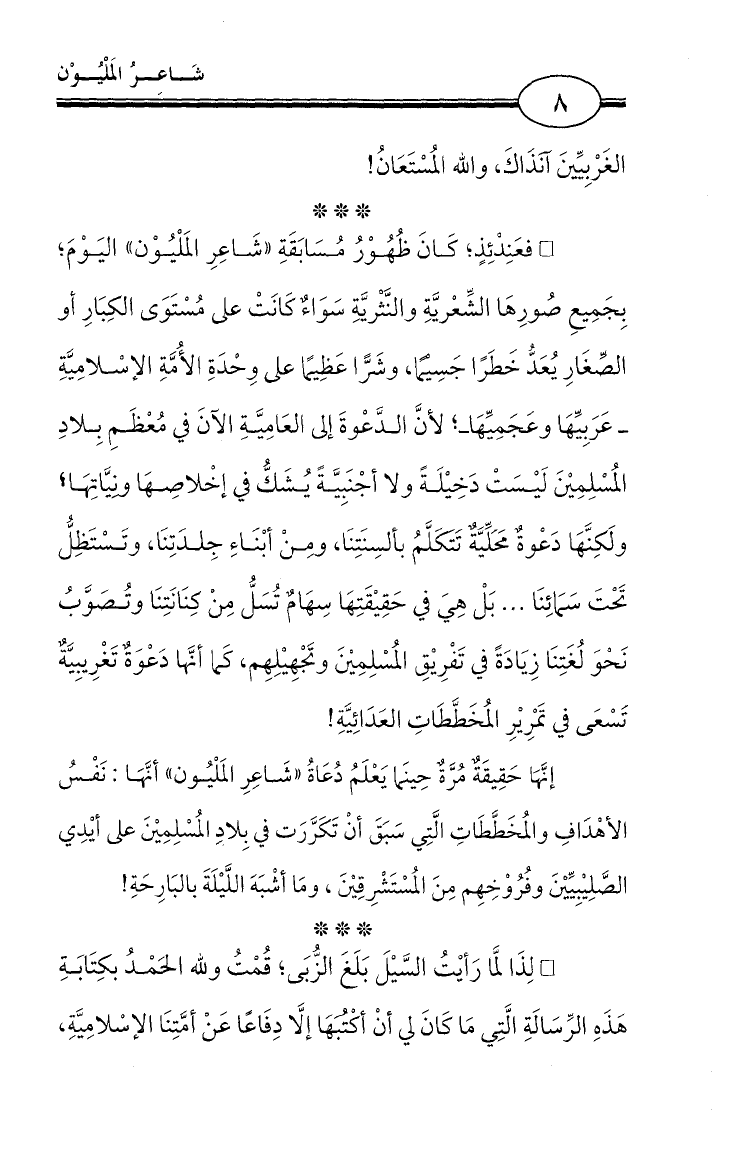 شَــاعِــرُ المَلْيُــوْن
٨
الغَرْبِيِّينَ آنَذَاكَ، والله المُسْتَعَانُ!
***
□ فعَنِدْئِذٍ؛ كَـانَ ظُهُـوْرُ مُـسَابَقَةِ «شَـاعِرِ المَلْيُـوْن» اليَـوْمَ؛
بِجَمِيعِ صُورِهَا الشِّعْرِيَّةِ والنَّثْرِيَّةِ سَوَاءٌ كَانَتْ على مُسْتَوَى الكِبَارِ أو
الصِّغَارِ يُعَدُّ خَطَرًا جَسِيمًا، وشَرًّا عَظِيمًا على وِحْدَةِ الأُمَّةِ الإسْـلامِيَّةِ
ـ عَرَبِيِّهَا وعَجَمِيِّهَاـ؛ لأنَّ الـدَّعْوةَ إلى العَامِيَّـةِ الآنَ في مُعْظَـمِ بِـلادِ
المُسْلِمِيْنَ لَيْسَتْ دَخِيْلَـةً ولا أجْنَبِيَّـةً يُـشَكُّ في إخْلاصِـهَا ونِيَّاتِهَـا؛
ولَكِنَّهَا دَعْوةٌ مَحَلِّيَّةٌ تَتَكَلَّمُ بألسِنَتِنَا، ومِـنْ أبْنَـاءِ جِلـدَتِنَا، وتَـسْتَظِلُّ
تَحْتَ سَمَائِنَا ... بَلْ هِيَ في حَقِيْقَتِهَا سِهَامٌ تُسَلُّ مِنْ كِنَانَتِنَا وتُـصَوَّبُ
نَحْوَ لُغَتِنَا زِيَادَةً في تَفْرِيْقِ المُسْلِمِيْنَ وتَجْهِيْلِهِم، كَما أنَّها دَعْوَةٌ تَغْرِيبِيَّةٌ
تَسْعَى في تَمْرِيْرِ المُخَطَّطَاتِ العَدَائِيَّةِ!
إنَّهَا حَقِيقَةٌ مُرَّةٌ حِينَما يَعْلَمُ دُعَاةُ «شَـاعِرِ المَلْيُـون» أنَّهَـا : نَفْـسُ
الأهْدَافِ والمُخَطَّطَاتِ الَّتِي سَبَقَ أنْ تَكَرَّرَت في بِلادِ المُسْلِمِيْنَ على أيْدِي
الصَّلِيْبِيِّيْنَ وفُرُوْخِهِم مِنَ المُسْتَشْرِقِيْنَ ، ومَا أشْبَهَ اللَّيْلَةَ بالبَارِحَةِ!
***
□ لِذَا لمَّا رَأيْتُ السَّيْلَ بَلَغَ الزُّبَى؛ قُمْتُ ولله الحَمْـدُ بكِتَابَـةِ
هَذَهِ الرِّسَالَةِ الَّتِي مَا كَانَ لي أنْ أكْتُبَهَا إلَّا دِفَاعًا عَنْ أمَّتِنَا الإسْلامِيَّةِ،